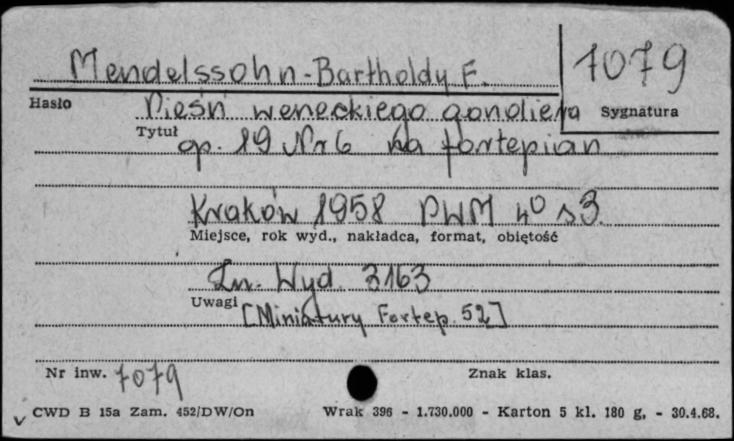 Mendelssohn-Bartholdy F. 1079
Hasło Pieśń weneckiego gondliera Sygnatura
Tytuł
op. 19 Nr 6 na fortepian
Kraków 1958 PWM 4° s 3.
Miejsce, rok wyd., nakładca, format, objętość
Zn. Wyd. 3163
Uwagi
[Miniatury Fortep. 52]
Nr inw. 7079 Znak klas.
CWD B 15a Zam. 452/DW/On Wrak 396 - 1.730.000 - Karton 5 kl. 180 g, - 30.4.68.